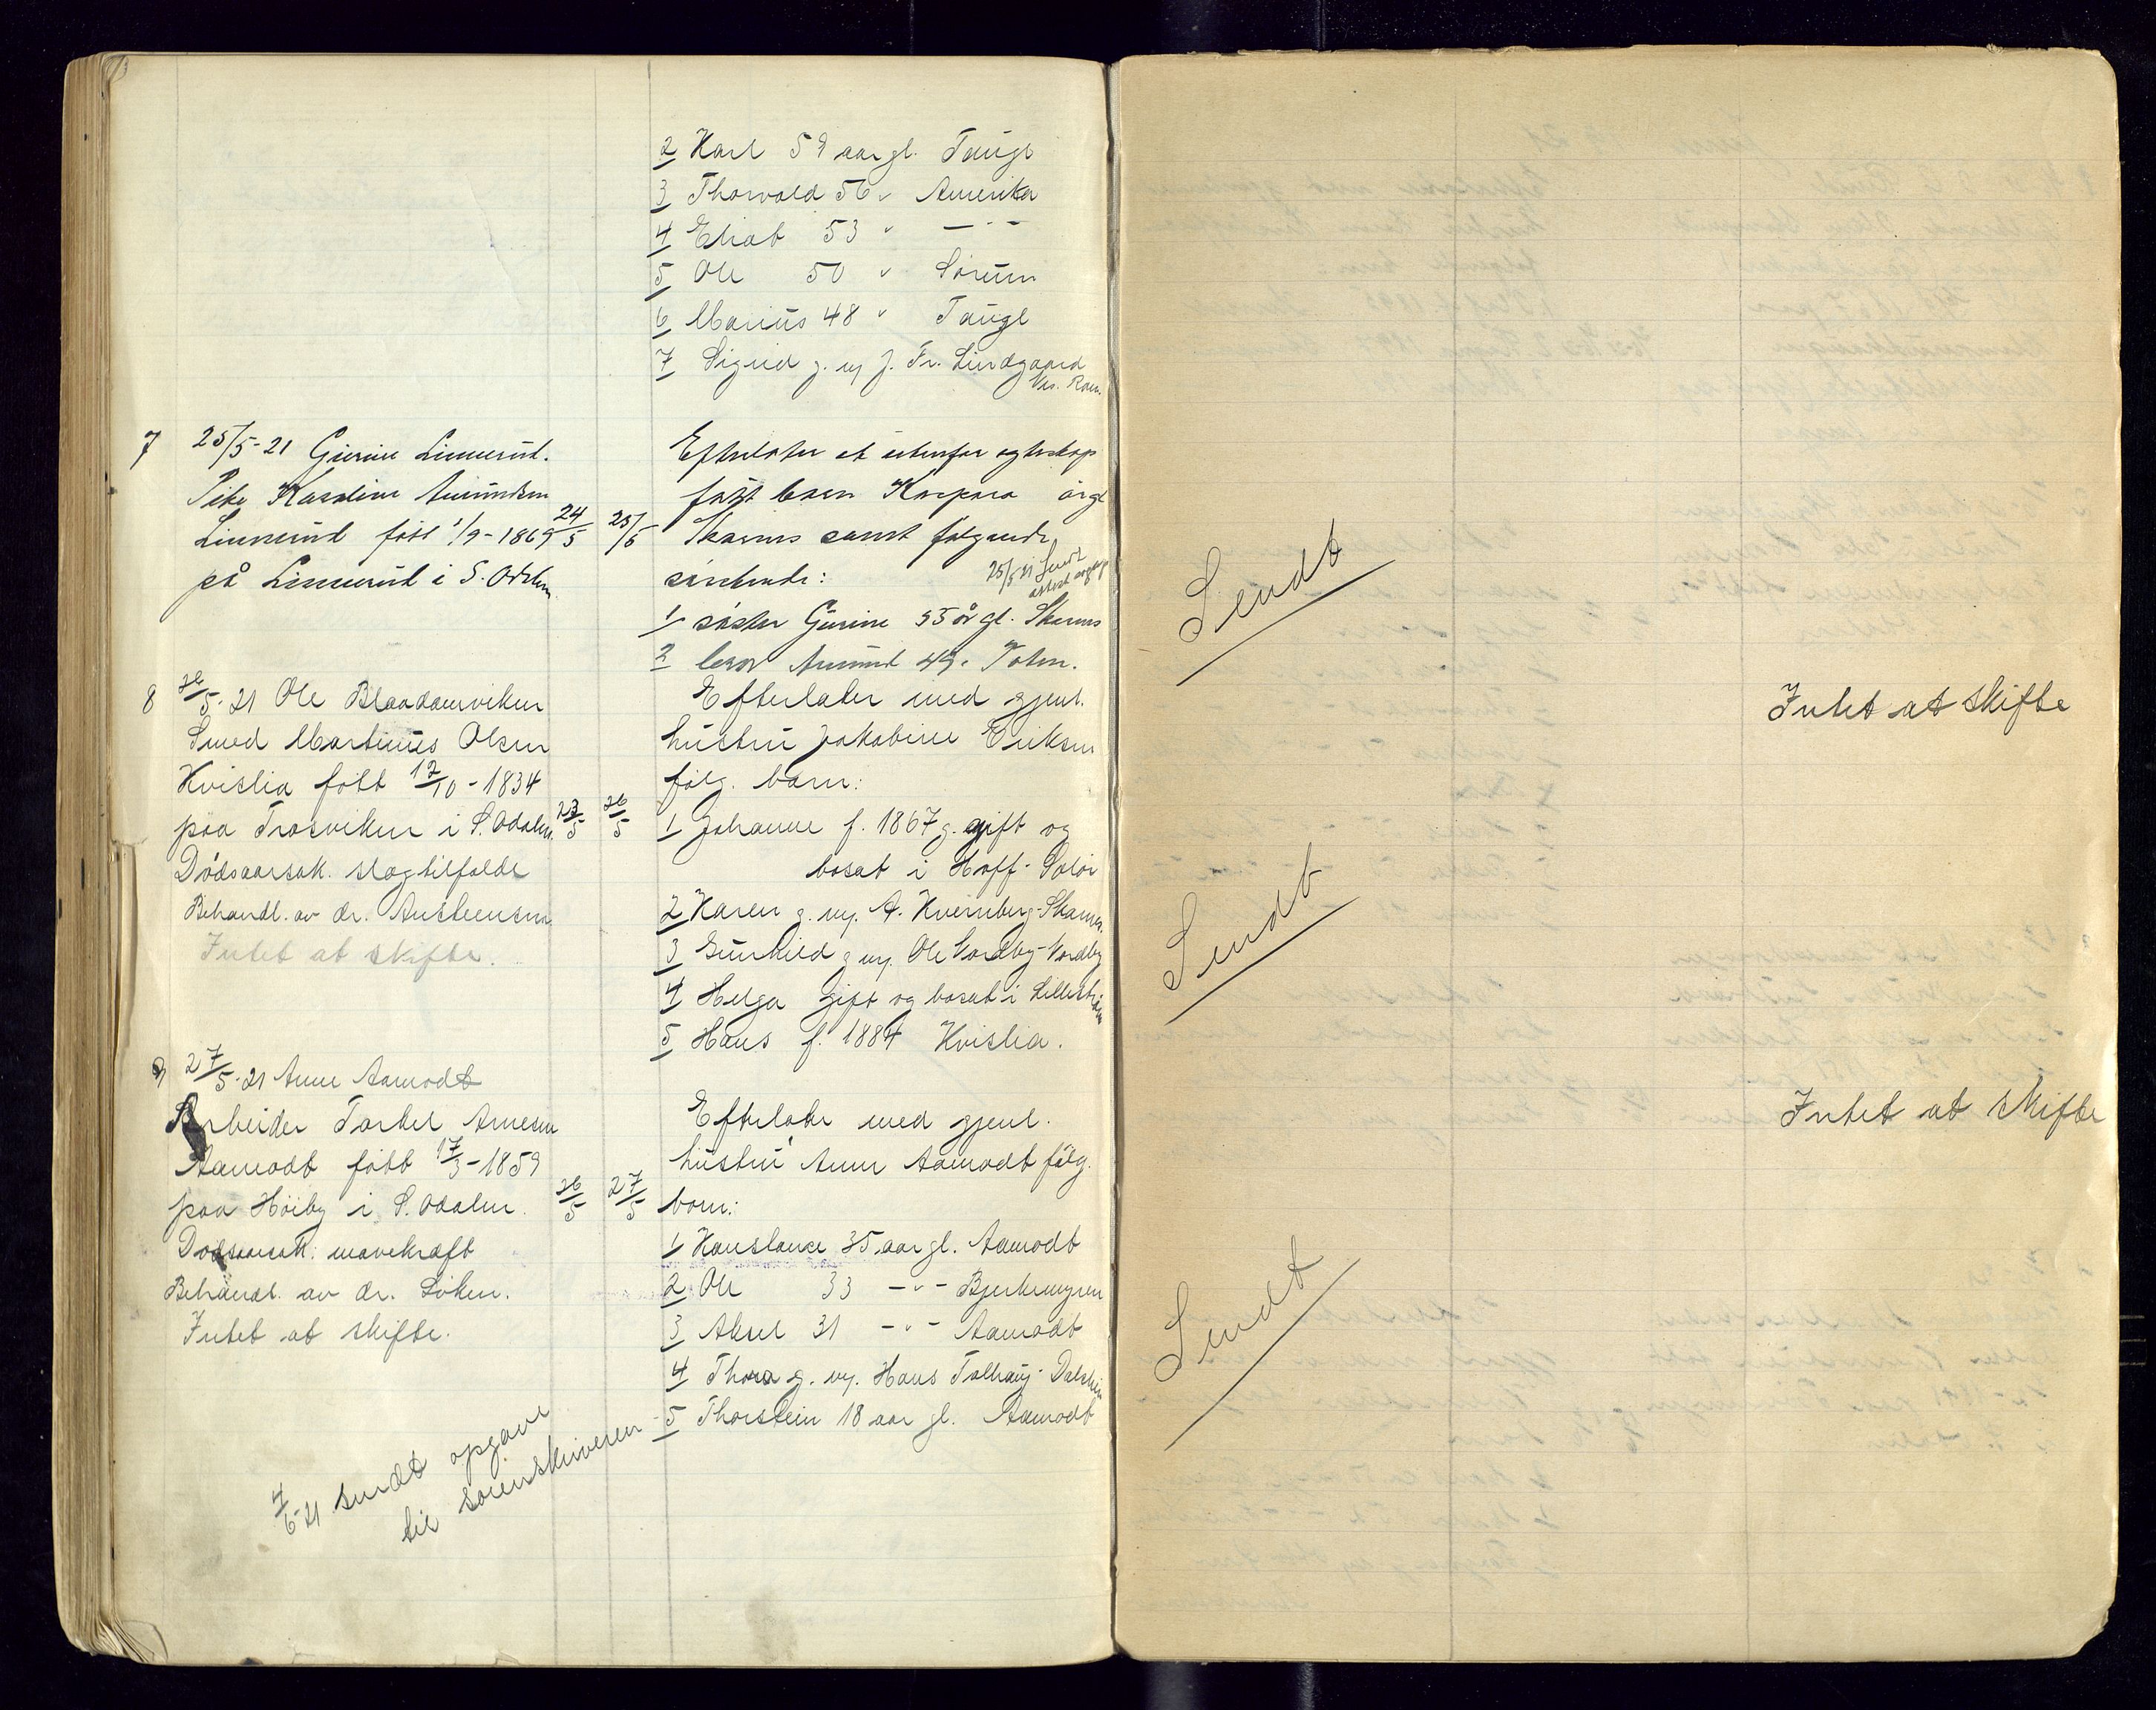 2 Karl 59 aar gl. Taugl
3 Thorvald 56 " Amerika
4 Eliab 53 " — " —
5 Ole 50 " Sørum
6 Marius 48 " Taugl
7 Sigrid g. m. J. Fr. Lundgaard
7 25/5-21 Gurine Linnerud.
Pike Karoline Amundsen
Linnerud født 1/9-1869 24/5 25/5
på Linnerud i S. Odalen
Efterlater et utenfor egteskap
født barn Kaspara
Skarnes samt følgende
søskende:
25/5 21 Sendt
1 søster Gurine 55 år gl. Skarnes
2 bror Amund 49 " Toten.
8 26/5-21 Ole Blaadamviken
Smed Martinus Olsen
Kvislia født 12/10-1834
paa Trosviken i S. Odalen 23/5 26/5
Dødsaarsak. slagtilfælde
Behandl. av dr. Austeensen
Intet at skifte.
Efterlater med gjenl.
hustru Jakobine Eriksen
følg. barn:
1 Johanne f. 1867 g. gift og
bosat i Hoff - Solør
2 Karen g. m. A. Kvernberg - Skarnes
3 Gunhild g. m. Ole Nordby - Nordby
4 Helga gift og bosat i Lillestrøm
5 Hans f. 1884 Kvislia.
9 27/5-21 Anne Aamodt
Arbeider Torkel Arnesen
Aamodt født 17/3-1859
paa Høiby i S. Odalen. 26/5 27/5
Dødsaarsak: mavekræft
Behandl. av dr. Løken.
Intet at skifte.
Efterlater med gjenl.
hustru Anne Aamodt følg.
barn:
1 Konstance 35 aar gl. Aamodt
2 Ole 33 — " — Bjerkemyren
3 Aksel 31 — " — Aamodt
4 Thora g. m. Hans Tolhaug
5 Thorstein 18 aar gl. Aamodt
4/6-21 sendt opgave
til sorenskriveren
Sendt
Intet at skifte
Sendt
Intet at skifte
Sendt